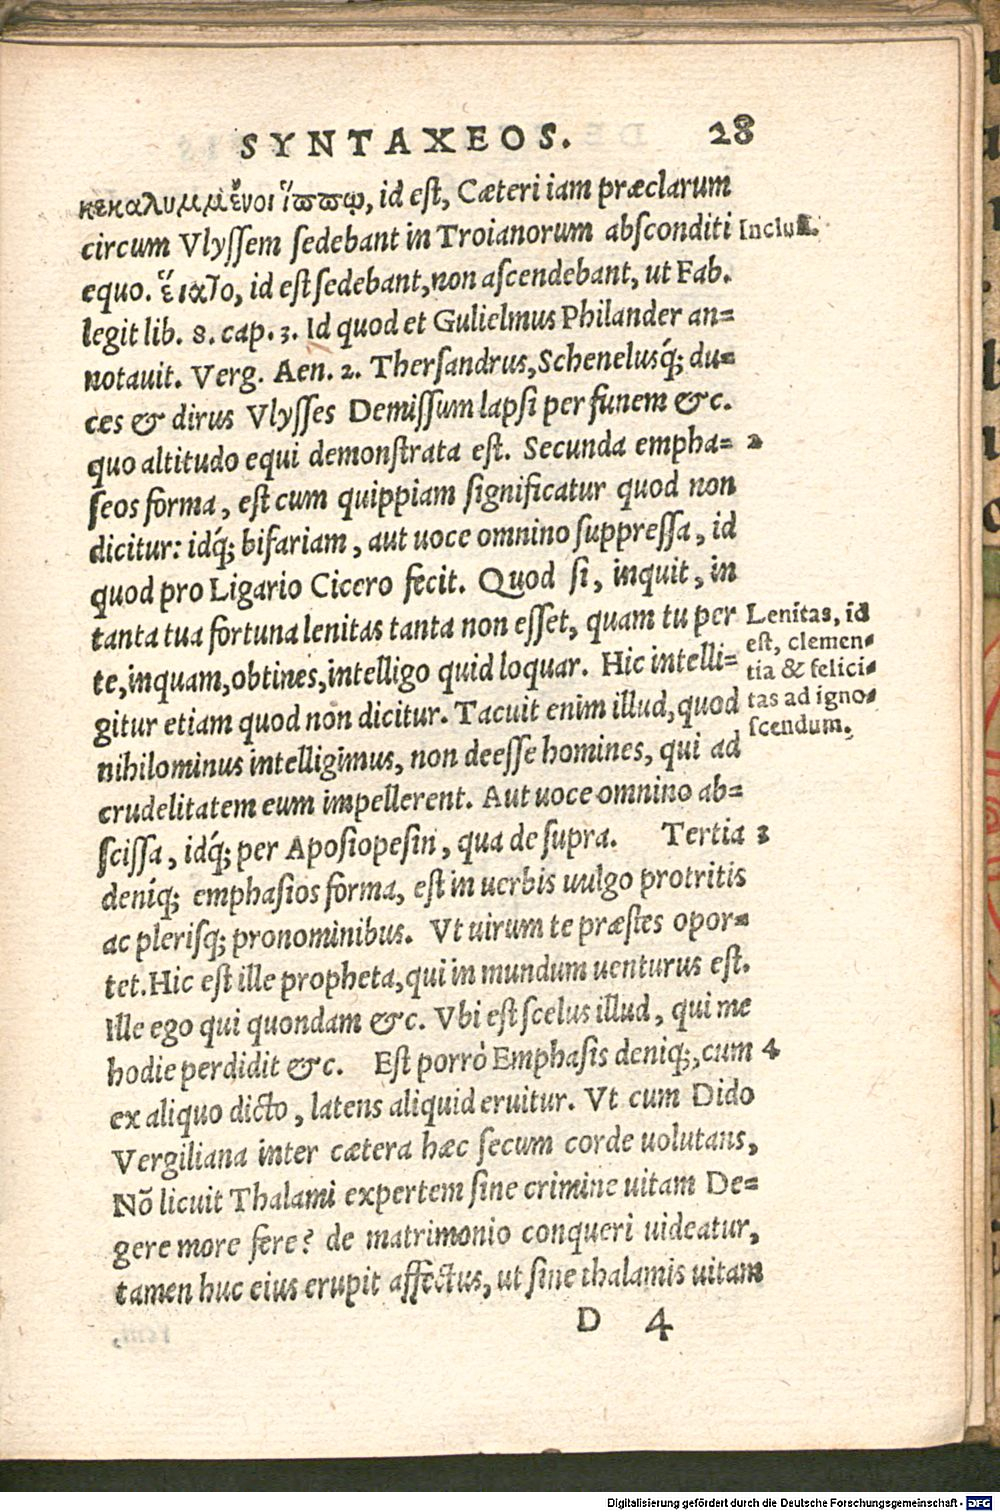 SYNTAXEOS. 28
κεκαλυμμένοι ἵππῳ, id eſt, Cæteri iam præclarum
circum Vlyſſem ſedebant in Troianorum abſconditi
equo. εἵατο, id eſt ſedebant, non aſcendebant, ut Fab.
legit lib. 8. cap. 3. Id quod et Gulielmus Philander an=
notauit. Verg. Aen. 2. Therſandrus, Schenelusq́; du=
ces & dirus Vlyſſes Demiſſum lapſi per funem &c.
quo altitudo equi demonſtrata eſt. Secunda empha= 2
ſeos forma, eſt cum quippiam ſignificatur quod non
dicitur: idq́; bifariam, aut uoce omnino ſuppreſſa, id
quod pro Ligario Cicero fecit. Quod ſi, inquit, in
tanta tua fortuna lenitas tanta non eſſet, quam tu per
te, inquam, obtines, intelligo quid loquar. Hic intelli=
gitur etiam quod non dicitur. Tacuit enim illud, quod
nihilominus intelligimus, non deeſſe homines, qui ad
crudelitatem eum impellerent. Aut uoce omnino ab=
ſciſſa, idq́; per Apoſiopeſin, qua de ſupra. Tertia 3
deniq́; emphaſios forma, eſt in uerbis uulgo protritis
ac pleriſq; pronominibus. Vt uirum te præſtes opor=
tet. Hic eſt ille propheta, qui in mundum uenturus eſt.
Ille ego qui quondam &c. Vbi eſt ſcelus illud, qui me
hodie perdidit &c. Eſt porrò Emphaſis deniq;, cum 4
ex aliquo dicto, latens aliquid eruitur. Vt cum Dido
Vergiliana inter cætera hæc ſecum corde uolutans,
Nõ licuit Thalami expertem ſine crimine uitam De=
gere more feræ? de matrimonio conqueri uideatur,
tamen huc eius erupit affectus, ut ſine thalamis uitam
D 4
Lenitas, id
eſt, clemen=
tia & felici=
tas ad igno=
ſcendum.
Digitalisierung gefördert durch die Deutsche Forschungsgemeinschaft - DFG